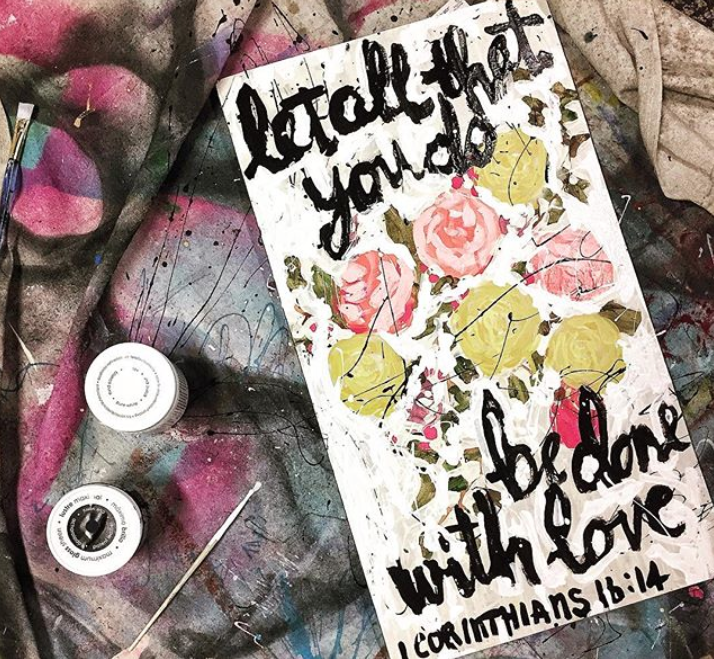 let all that
you do
be done
with love
1 CORINTHIANS 16:14
maximum gloss sheen